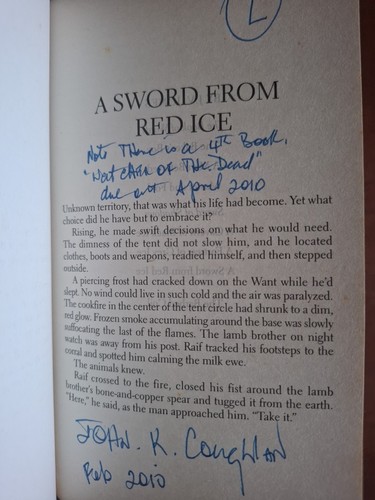 L
A SWORD FROM
RED ICE
Note There is a 4th Book,
"Watcher of The Dead"
due out April 2010
Unknown territory, that was what his life had become. Yet what
choice did he have but to embrace it?
Rising, he made swift decisions on what he would need.
The dimness of the tent did not slow him, and he located
clothes, boots and weapons, readied himself, and then stepped
outside.
A piercing frost had cracked down on the Want while he'd
slept. No wind could live in such cold and the air was paralyzed.
The cookfire in the center of the tent circle had shrunk to a dim,
red glow. Frozen smoke accumulating around the base was slowly
suffocating the last of the flames. The lamb brother on night
watch was away from his post. Raif tracked his footsteps to the
corral and spotted him calming the milk ewe.
The animals knew.
Raif crossed to the fire, closed his fist around the lamb
brother's bone-and-copper spear and tugged it from the earth.
"Here," he said, as the man approached him. "Take it."
JOHN. K. Coughlan
Feb 2010